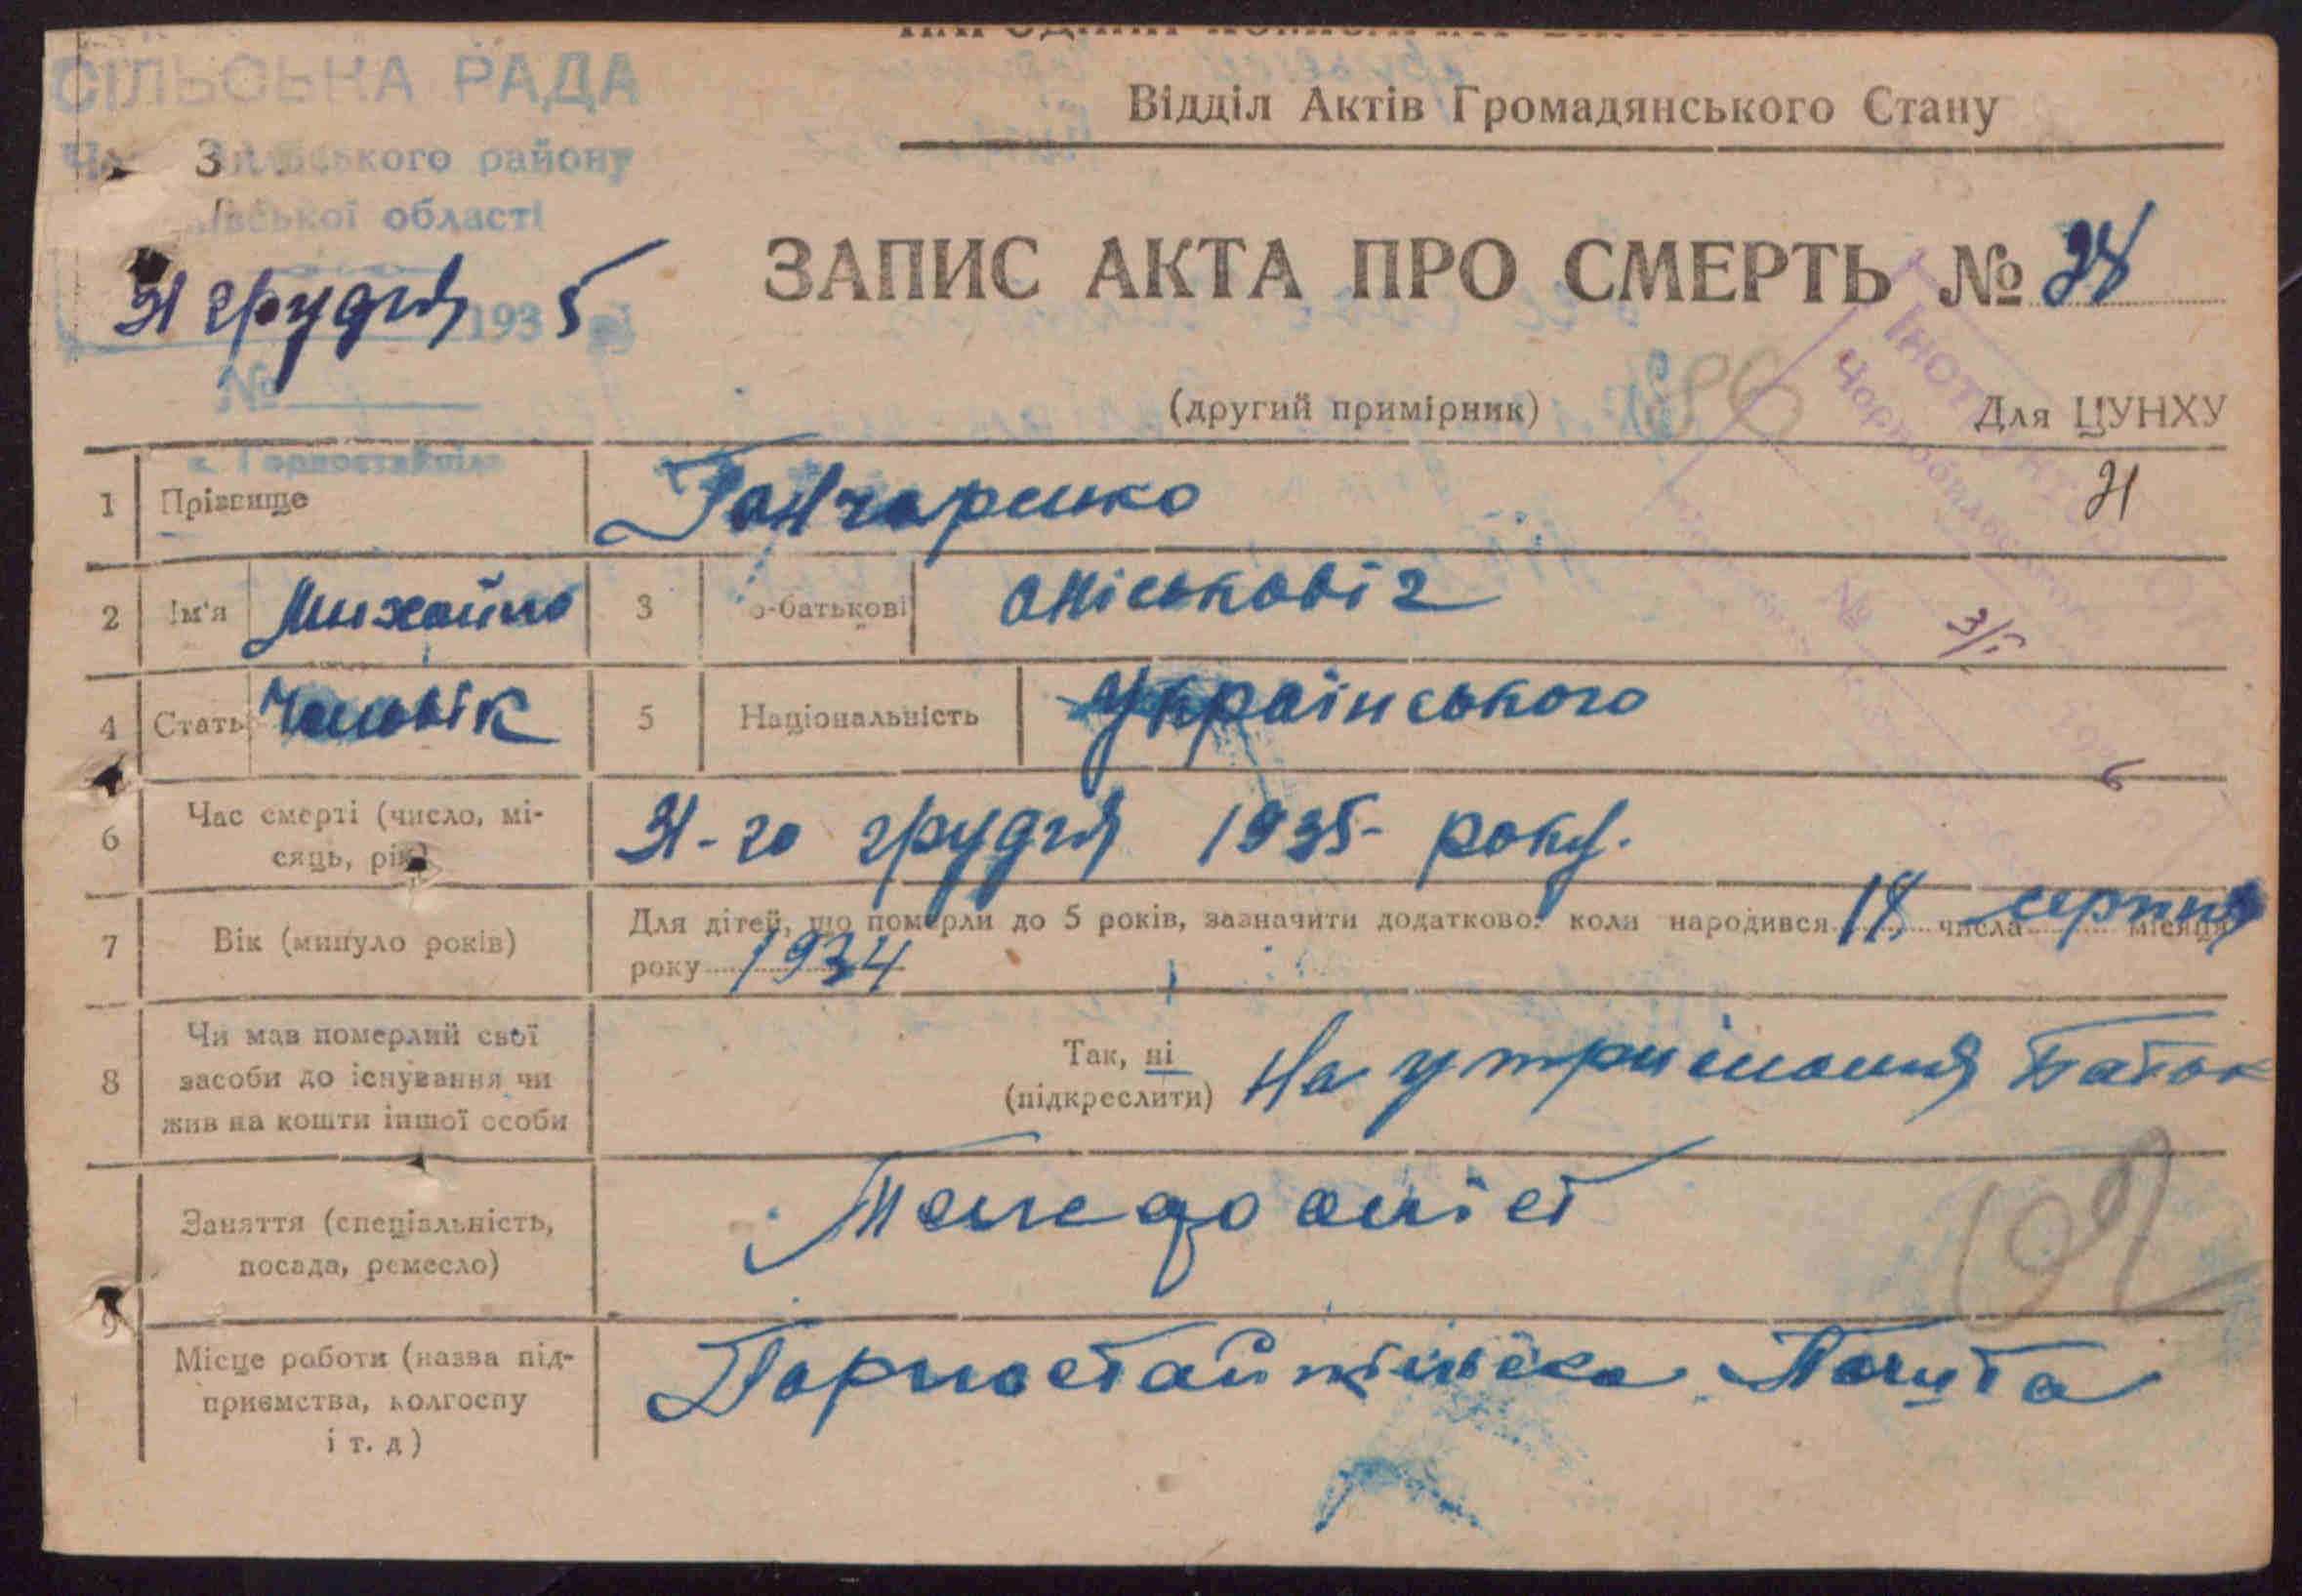 СІЛЬСЬКА РАДА
Відділ Актів Громадянського Стану
району
області
31 грудня 1935
ЗАПИС АКТА ПРО СМЕРТЬ № 28
№
(другий примірник)
Для ЦУНХУ
с. Горностайпіль
1 Прізвище Гончаренко
31
2 Ім'я Михайло 3 о-батькові
3/I
4 Стать Чоловік 5 Національність Українського
6 Час смерті (число, мі-
сяць, рік) 31-го грудня 1935- року.
7 Вік (минуло років) Для дітей, що померли до 5 років, зазначити додатково: коли народився 18 числа серпня місяця
року 1934
8 Чи мав померлий свої
засоби до існування чи
жив на кошти іншої особи
Так, ні
(підкреслити)
На утриманні Батьк
Заняття (спеціальність,
посада, ремесло)
9
Місце роботи (назва під-
приємства, колгоспу
і т. д)
Горностайпільска Почта